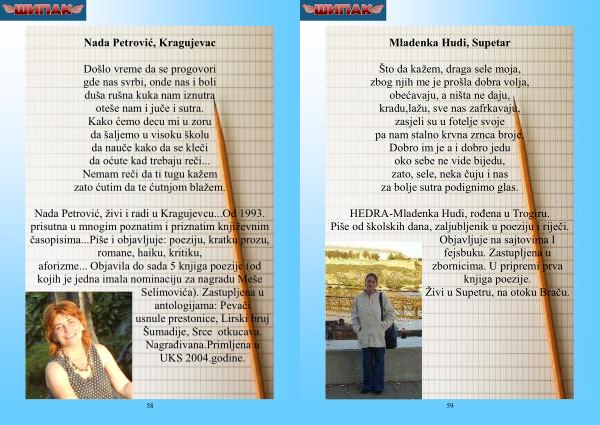 ШИПАК
Nada Petrović, Kragujevac
Došlo vreme da se progovori
gde nas svrbi, onde nas i boli
duša rušna kuka nam iznutra
oteše nam i juče i sutra.
Kako ćemo decu mi u zoru
da šaljemo u visoku školu
da nauče kako da se kleči
da oćute kad trebaju reči...
Nemam reči da ti tugu kažem
zato ćutim da te ćutnjom blažem.
Nada Petrović, živi i radi u Kragujevcu...Od 1993.
prisutna u mnogim poznatim i priznatim književnim
časopisima...Piše i objavljuje: poeziju, kratku prozu,
romane, haiku, kritiku,
aforizme... Objavila do sada 5 knjiga poezije (od
kojih je jedna imala nominaciju za nagradu Meše
Selimovića). Zastupljena u
antologijama: Pevači
usnule prestonice, Lirski bruj
Šumadije, Srce otkucava.
Nagrađivana.Primljena u
UKS 2004.godine.
58
ШИПАК
Mladenka Hudi, Supetar
Što da kažem, draga sele moja,
zbog njih me je prošla dobra volja,
obećavaju, a ništa ne daju,
kradu,lažu, sve nas zafrkavaju,
zasjeli su u fotelje svoje
pa nam stalno krvna zrnca broje.
Dobro im je a i dobro jedu
oko sebe ne vide bijedu,
zato, sele, neka čuju i nas
za bolje sutra podignimo glas.
HEDRA-Mladenka Hudi, rođena u Trogiru.
Piše od školskih dana, zaljubljenik u poeziju i riječi.
Objavljuje na sajtovima I
fejsbuku. Zastupljena u
zbornicima. U pripremi prva
knjiga poezije.
Živi u Supetru, na otoku Braču.
59